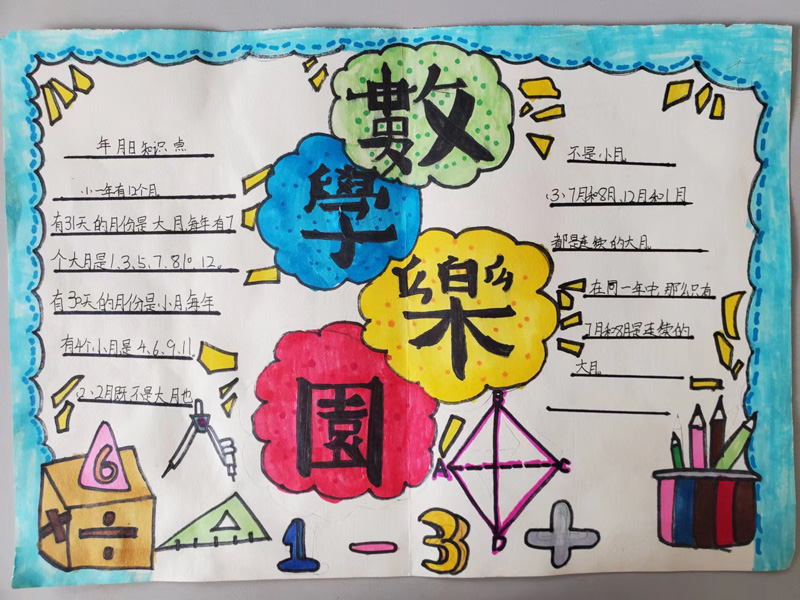 數
學
樂
園
年月日知识点
小一年有12个月
有31天的月份是大月,每年有7
个大月是1.3.5.7.8.10.12。
有30天的月份是小月每年
有4个小月是4.6.9.11。
2、2月既不是大月也
不是小月。
3、7月和8月,12月和1月
都是连续的大月。
在同一年中,那么只有
7月和8月是连续的
大月。
6
×
÷
A
B
C
D
1 - 3 +